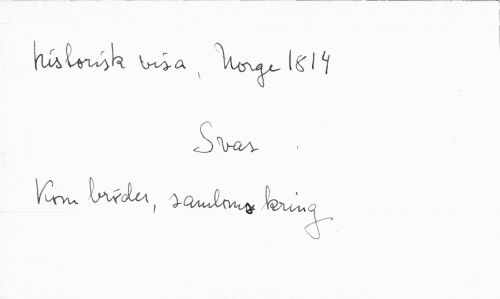 historisk visa, Norge 1814
Svar
Kom bröder, samloms kring